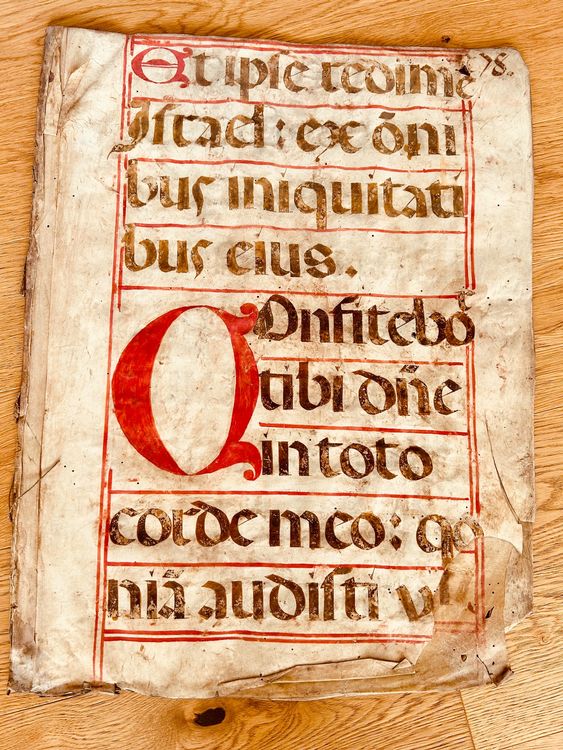 Et ipſe redime
Iſrael: ex õni
bus iniquitati
bus eius.
COnfitebor
tibi dñe
in toto
corde meo: qo
niã audiſti